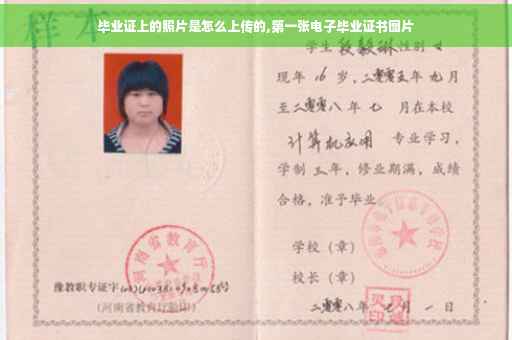 毕业证上的照片是怎么上传的,第一张电子毕业证书图片
样本
学生 段毅琳 性别 女
现年 16 岁,二零零五年 九月
至二零零八年 七 月在本校
计算机应用 专业学习,
学制 三 年,修业期满,成绩
合格,准予毕业
学校(章)
校长(章)
二零零八年 月 一 日
河南省教育厅
豫教职专证字
(河南省教育厅验印)